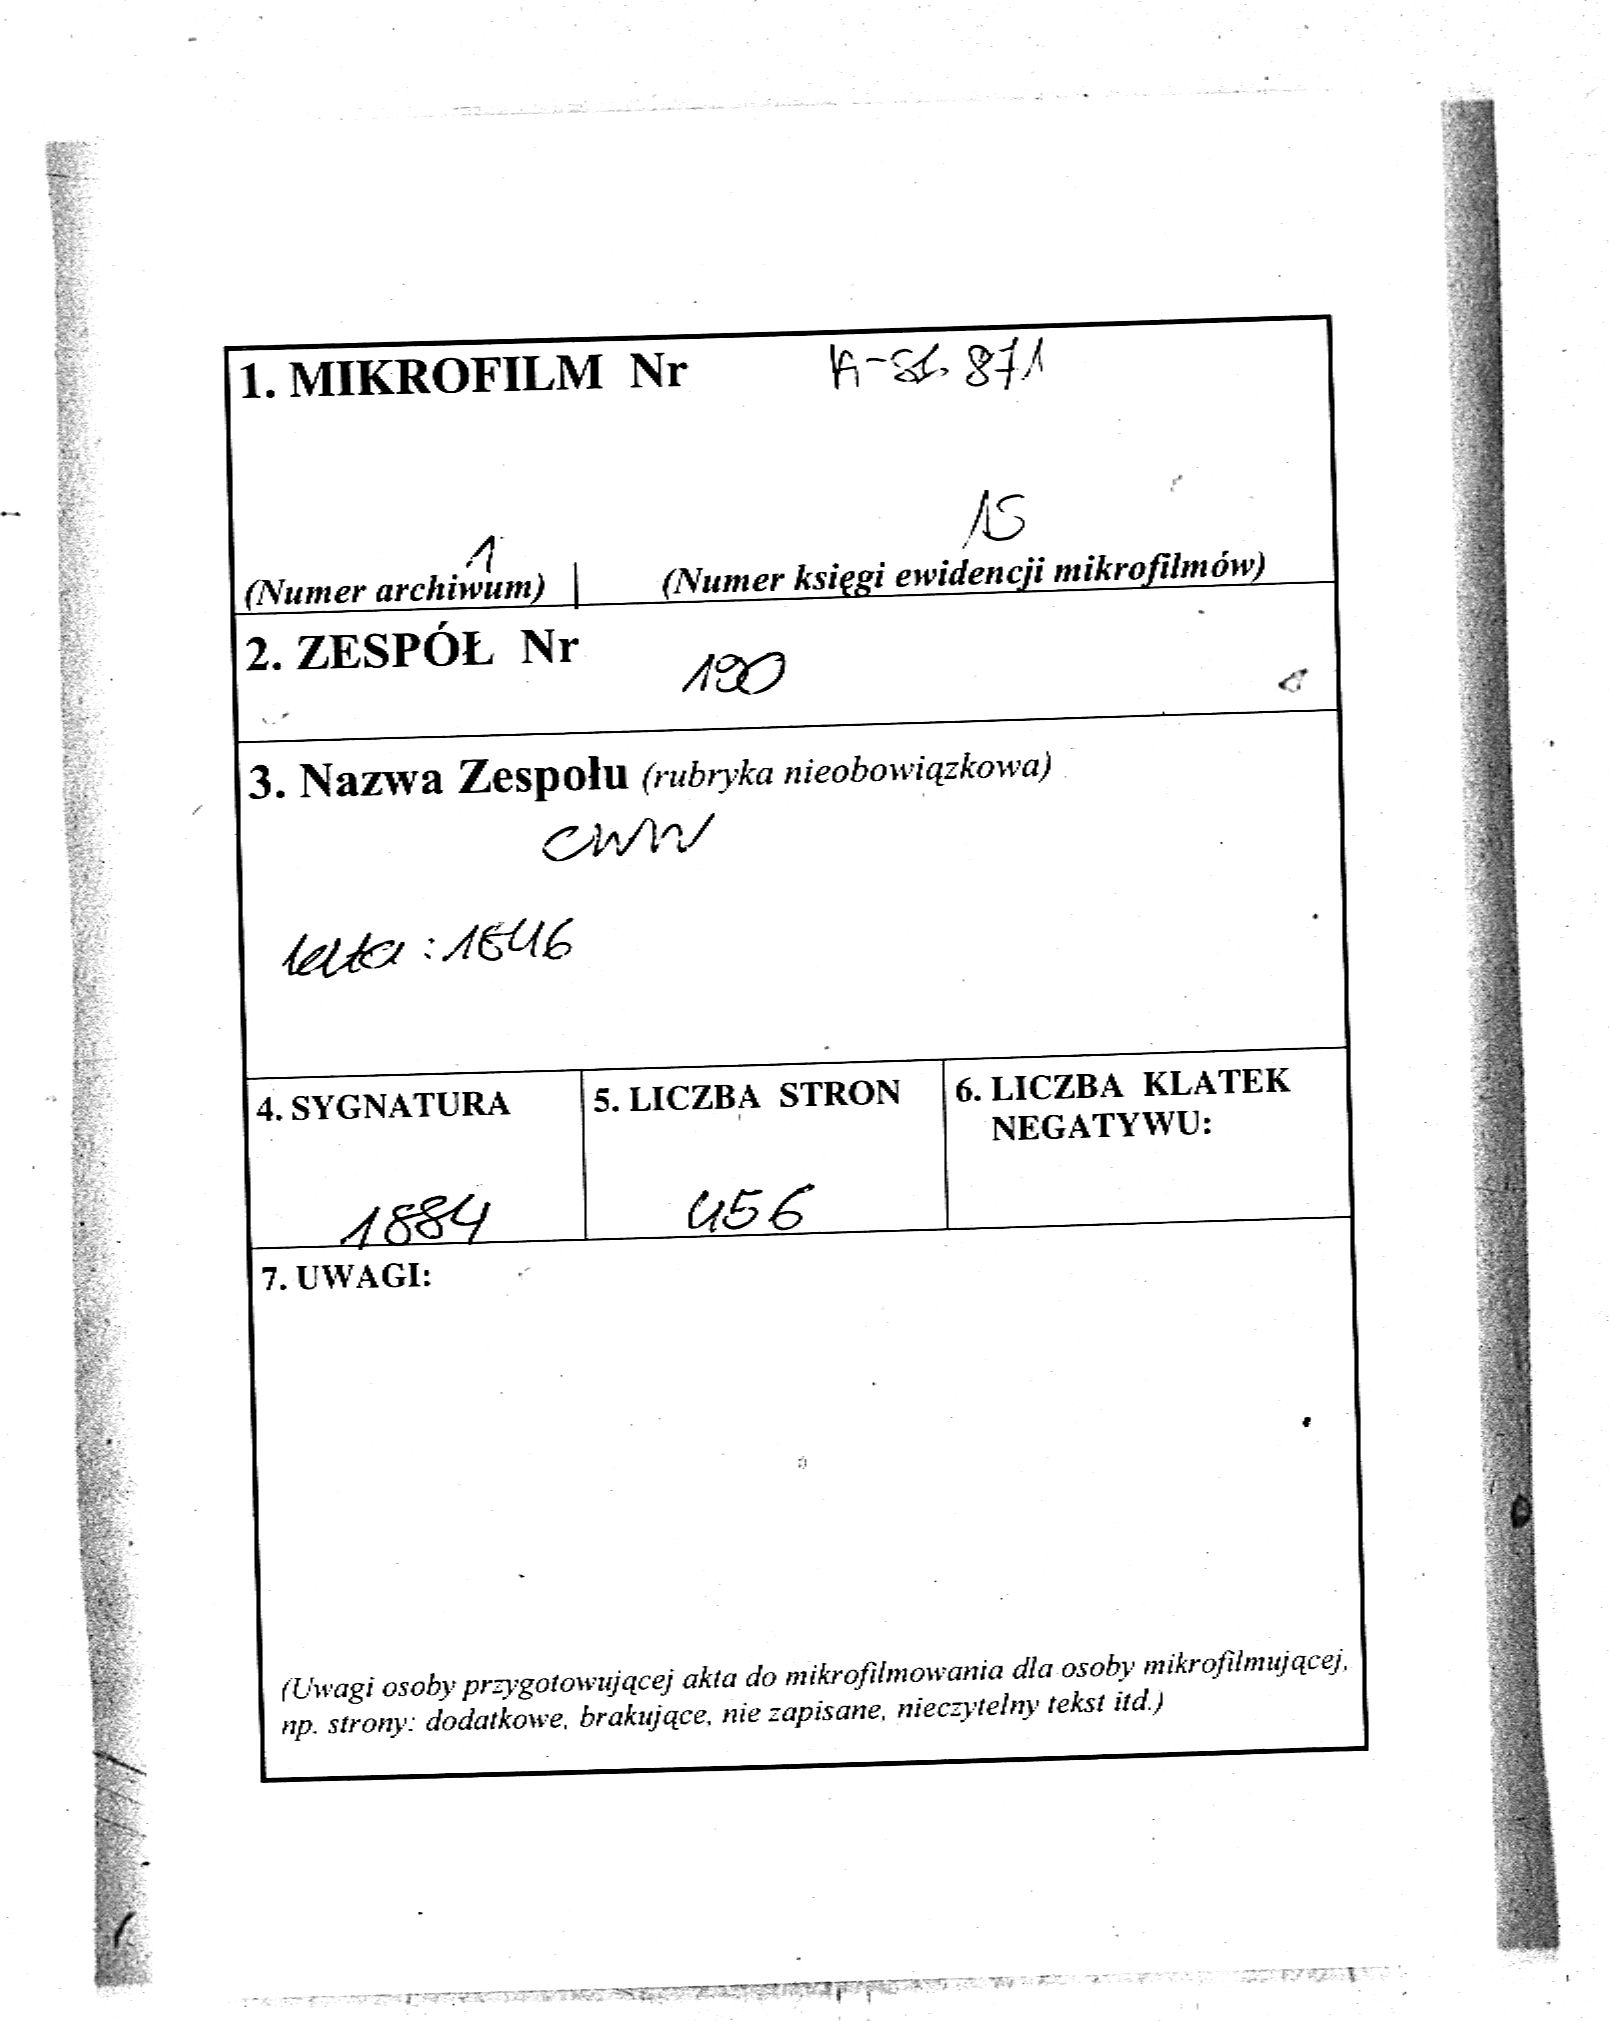 1. MIKROFILM Nr A-St. 871
1 15
(Numer archiwum) (Numer księgi ewidencji mikrofilmów)
2. ZESPÓŁ Nr 190
3. Nazwa Zespołu (rubryka nieobowiązkowa)
CWW
lata: 1846
4. SYGNATURA 5. LICZBA STRON 6. LICZBA KLATEK
NEGATYWU:
1884 456
7. UWAGI:
(Uwagi osoby przygotowującej akta do mikrofilmowania dla osoby mikrofilmującej,
np. strony: dodatkowe, brakujące, nie zapisane, nieczytelny tekst itd.)